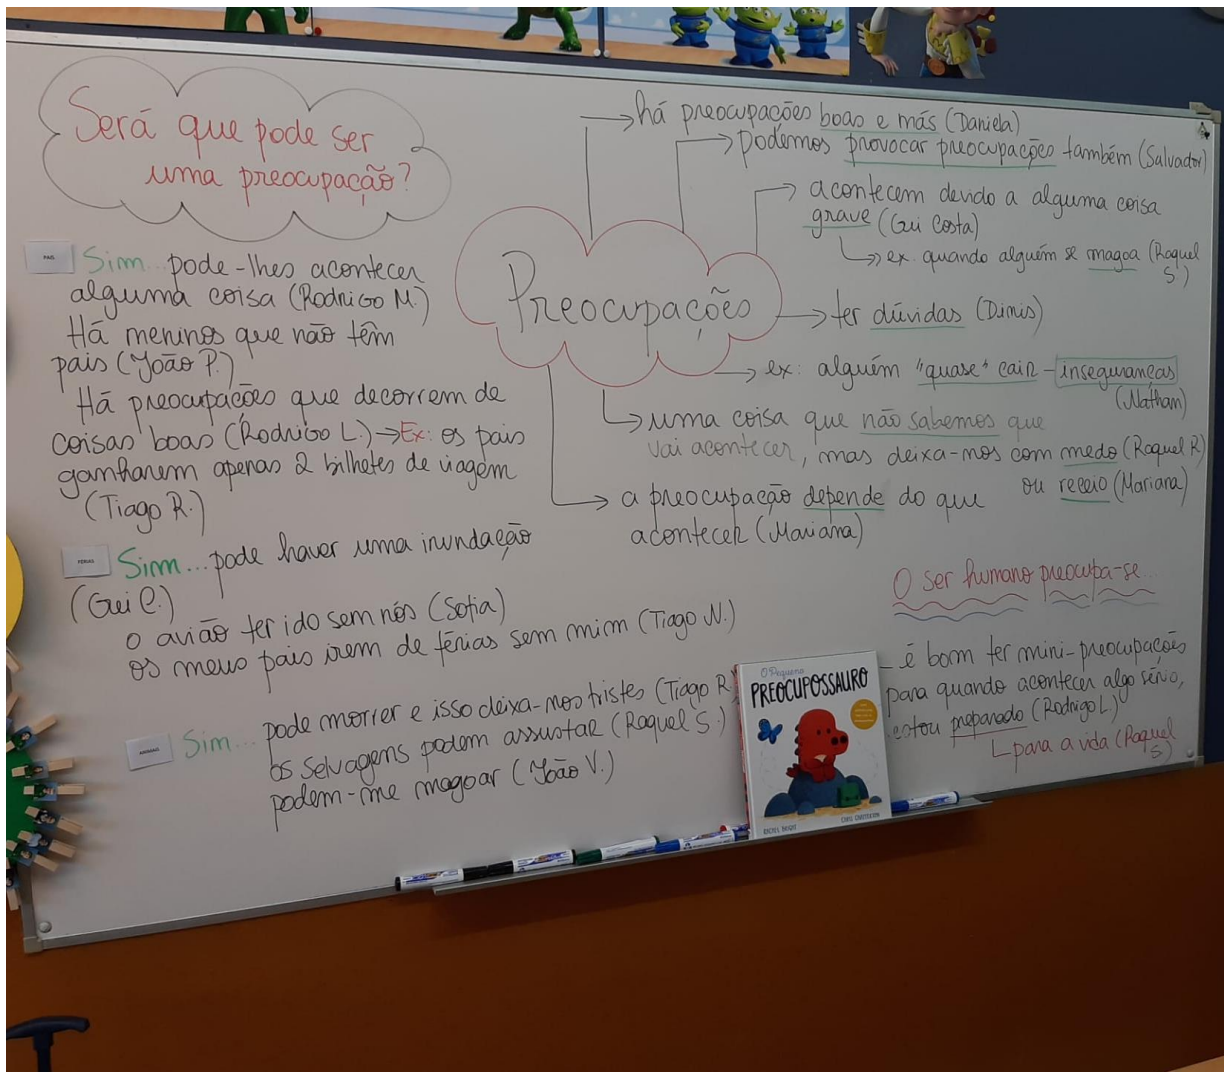 Será que pode ser
uma preocupação?
PAIS
Sim... pode-lhes acontecer
alguma coisa (Rodrigo M.)
Há meninos que não têm
pais (João P.)
Há preocupações que decorrem de
coisas boas (Rodrigo L.) → Ex: os pais
ganharem apenas 2 bilhetes de viagem
(Tiago R.)
FÉRIAS
Sim... pode haver uma inundação
(Gui C.)
o avião ter ido sem nós (Sofia)
os meus pais irem de férias sem mim (Tiago N.)
ANIMAIS
Sim... pode morrer e isso deixa-nos tristes (Tiago R
os selvagens podem assustar (Raquel S.)
podem-me magoar (João V.)
Preocupações
→ há preocupações boas e más (Daniela)
→ podemos provocar preocupações também (Salvador)
→ acontecem devido a alguma coisa
grave (Gui Costa)
→ ex. quando alguém se magoa (Raquel
S.)
→ ter dúvidas (Dinis)
→ ex: alguém "quase" cair - inseguranças
(Nathan)
→ uma coisa que não sabemos que
vai acontecer, mas deixa-nos com medo (Raquel R)
ou receio (Mariana)
→ a preocupação depende do que
acontecer (Mariana)
O ser humano preocupa-se...
... é bom ter mini-preocupações
para quando acontecer algo sério,
estou preparado (Rodrigo L.)
para a vida (Raquel
S)
O Pequeno
PREOCUPOSSAURO
RACHEL BRIGHT
CHRIS CHATTERTON